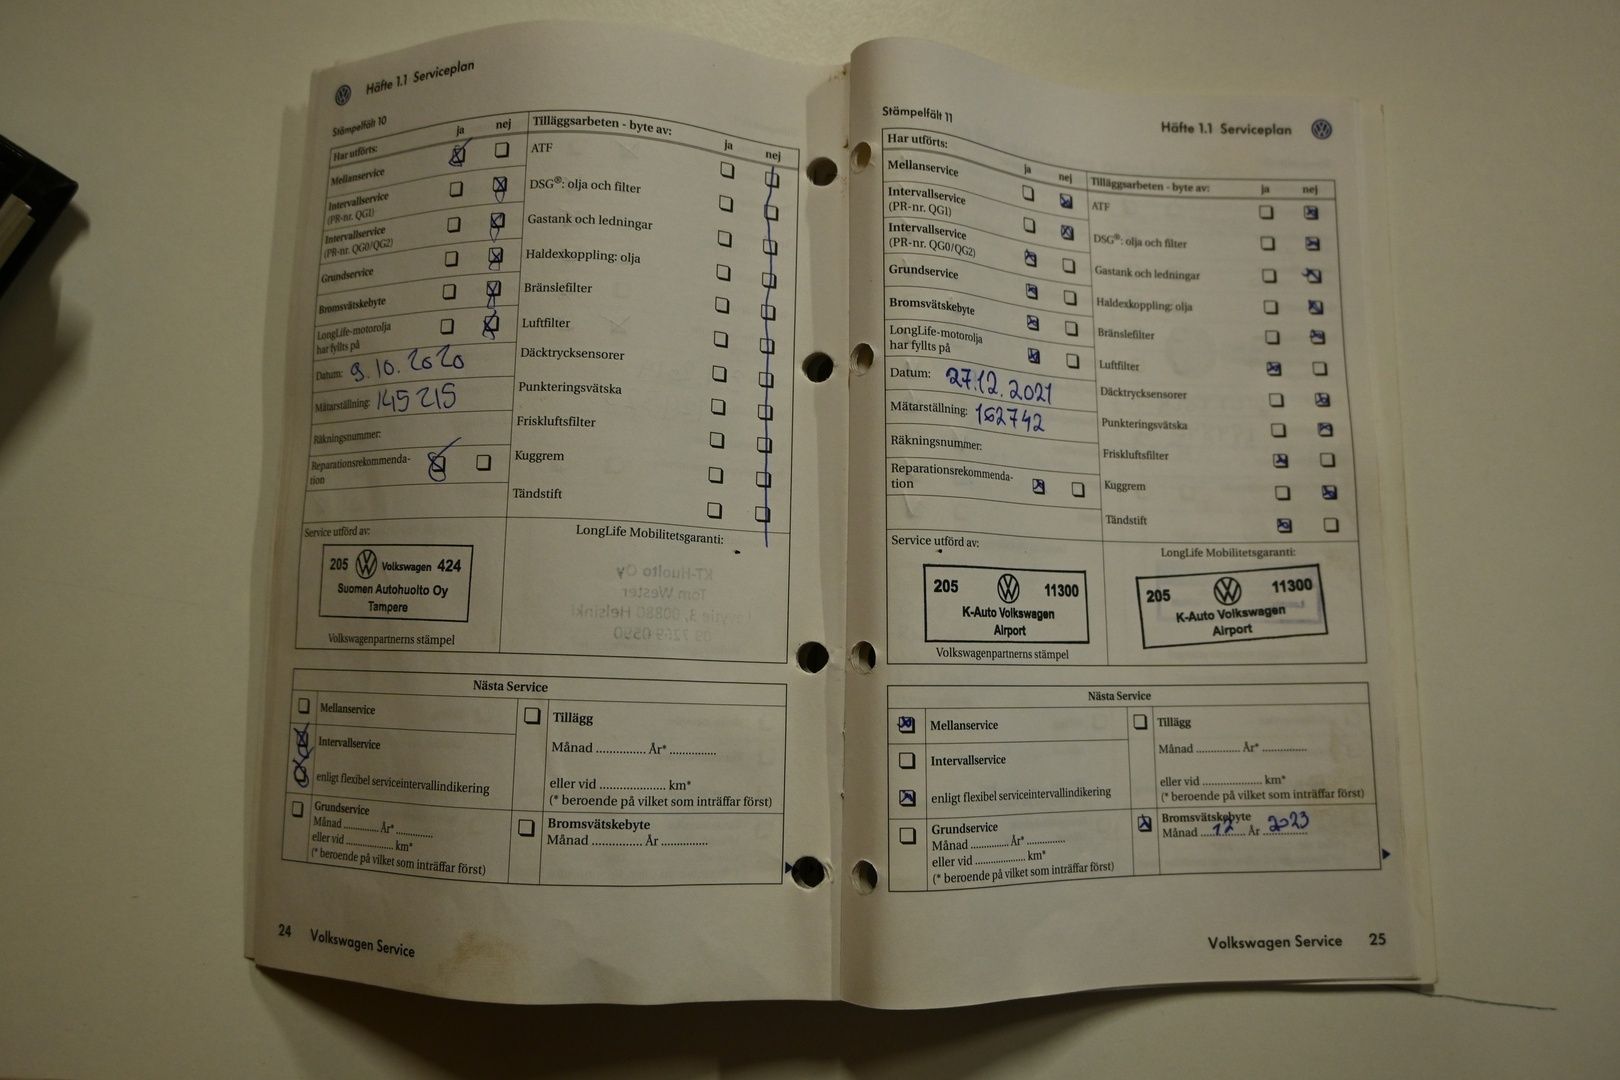 Häfte 1.1 Serviceplan
Stämpelfält 10
Har utförts:
ja nej
Mellanservice
Intervallservice
(PR-nr. QG1)
Intervallservice
(PR-nr. QG0/QG2)
Grundservice
Bromsvätskebyte
LongLife-motorolja
har fyllts på
Datum: 9.10.2020
Mätarställning: 145 215
Räkningsnummer:
Reparationsrekommenda-
tion
Tilläggsarbeten - byte av:
ja nej
ATF
DSG®: olja och filter
Gastank och ledningar
Haldexkoppling: olja
Bränslefilter
Luftfilter
Däcktrycksensorer
Punkteringsvätska
Friskluftsfilter
Kuggrem
Tändstift
Service utförd av:
205 Volkswagen 424
Suomen Autohuolto Oy
Tampere
Volkswagenpartnerns stämpel
LongLife Mobilitetsgaranti:
Nästa Service
Mellanservice
Intervallservice
enligt flexibel serviceintervallindikering
Grundservice
Månad ............ År* ............
eller vid ............... km*
(* beroende på vilket som inträffar först)
Tillägg
Månad ............... År* ..............
eller vid .................... km*
(* beroende på vilket som inträffar först)
Bromsvätskebyte
Månad ............... År ..............
24 Volkswagen Service
Stämpelfält 11
Häfte 1.1 Serviceplan
Har utförts:
ja nej
Mellanservice
Intervallservice
(PR-nr. QG1)
Intervallservice
(PR-nr. QG0/QG2)
Grundservice
Bromsvätskebyte
LongLife-motorolja
har fyllts på
Datum: 27.12.2021
Mätarställning: 162742
Räkningsnummer:
Reparationsrekommenda-
tion
Tilläggsarbeten - byte av:
ja nej
ATF
DSG®: olja och filter
Gastank och ledningar
Haldexkoppling: olja
Bränslefilter
Luftfilter
Däcktrycksensorer
Punkteringsvätska
Friskluftsfilter
Kuggrem
Tändstift
Service utförd av:
205 11300
K-Auto Volkswagen
Airport
Volkswagenpartnerns stämpel
LongLife Mobilitetsgaranti:
205 11300
K-Auto Volkswagen
Airport
Nästa Service
Mellanservice
Intervallservice
enligt flexibel serviceintervallindikering
Grundservice
Månad ............ År* ............
eller vid ............... km*
(* beroende på vilket som inträffar först)
Tillägg
Månad ............... År* ..............
eller vid .................... km*
(* beroende på vilket som inträffar först)
Bromsvätskebyte
Månad ...12... År 2023
Volkswagen Service 25